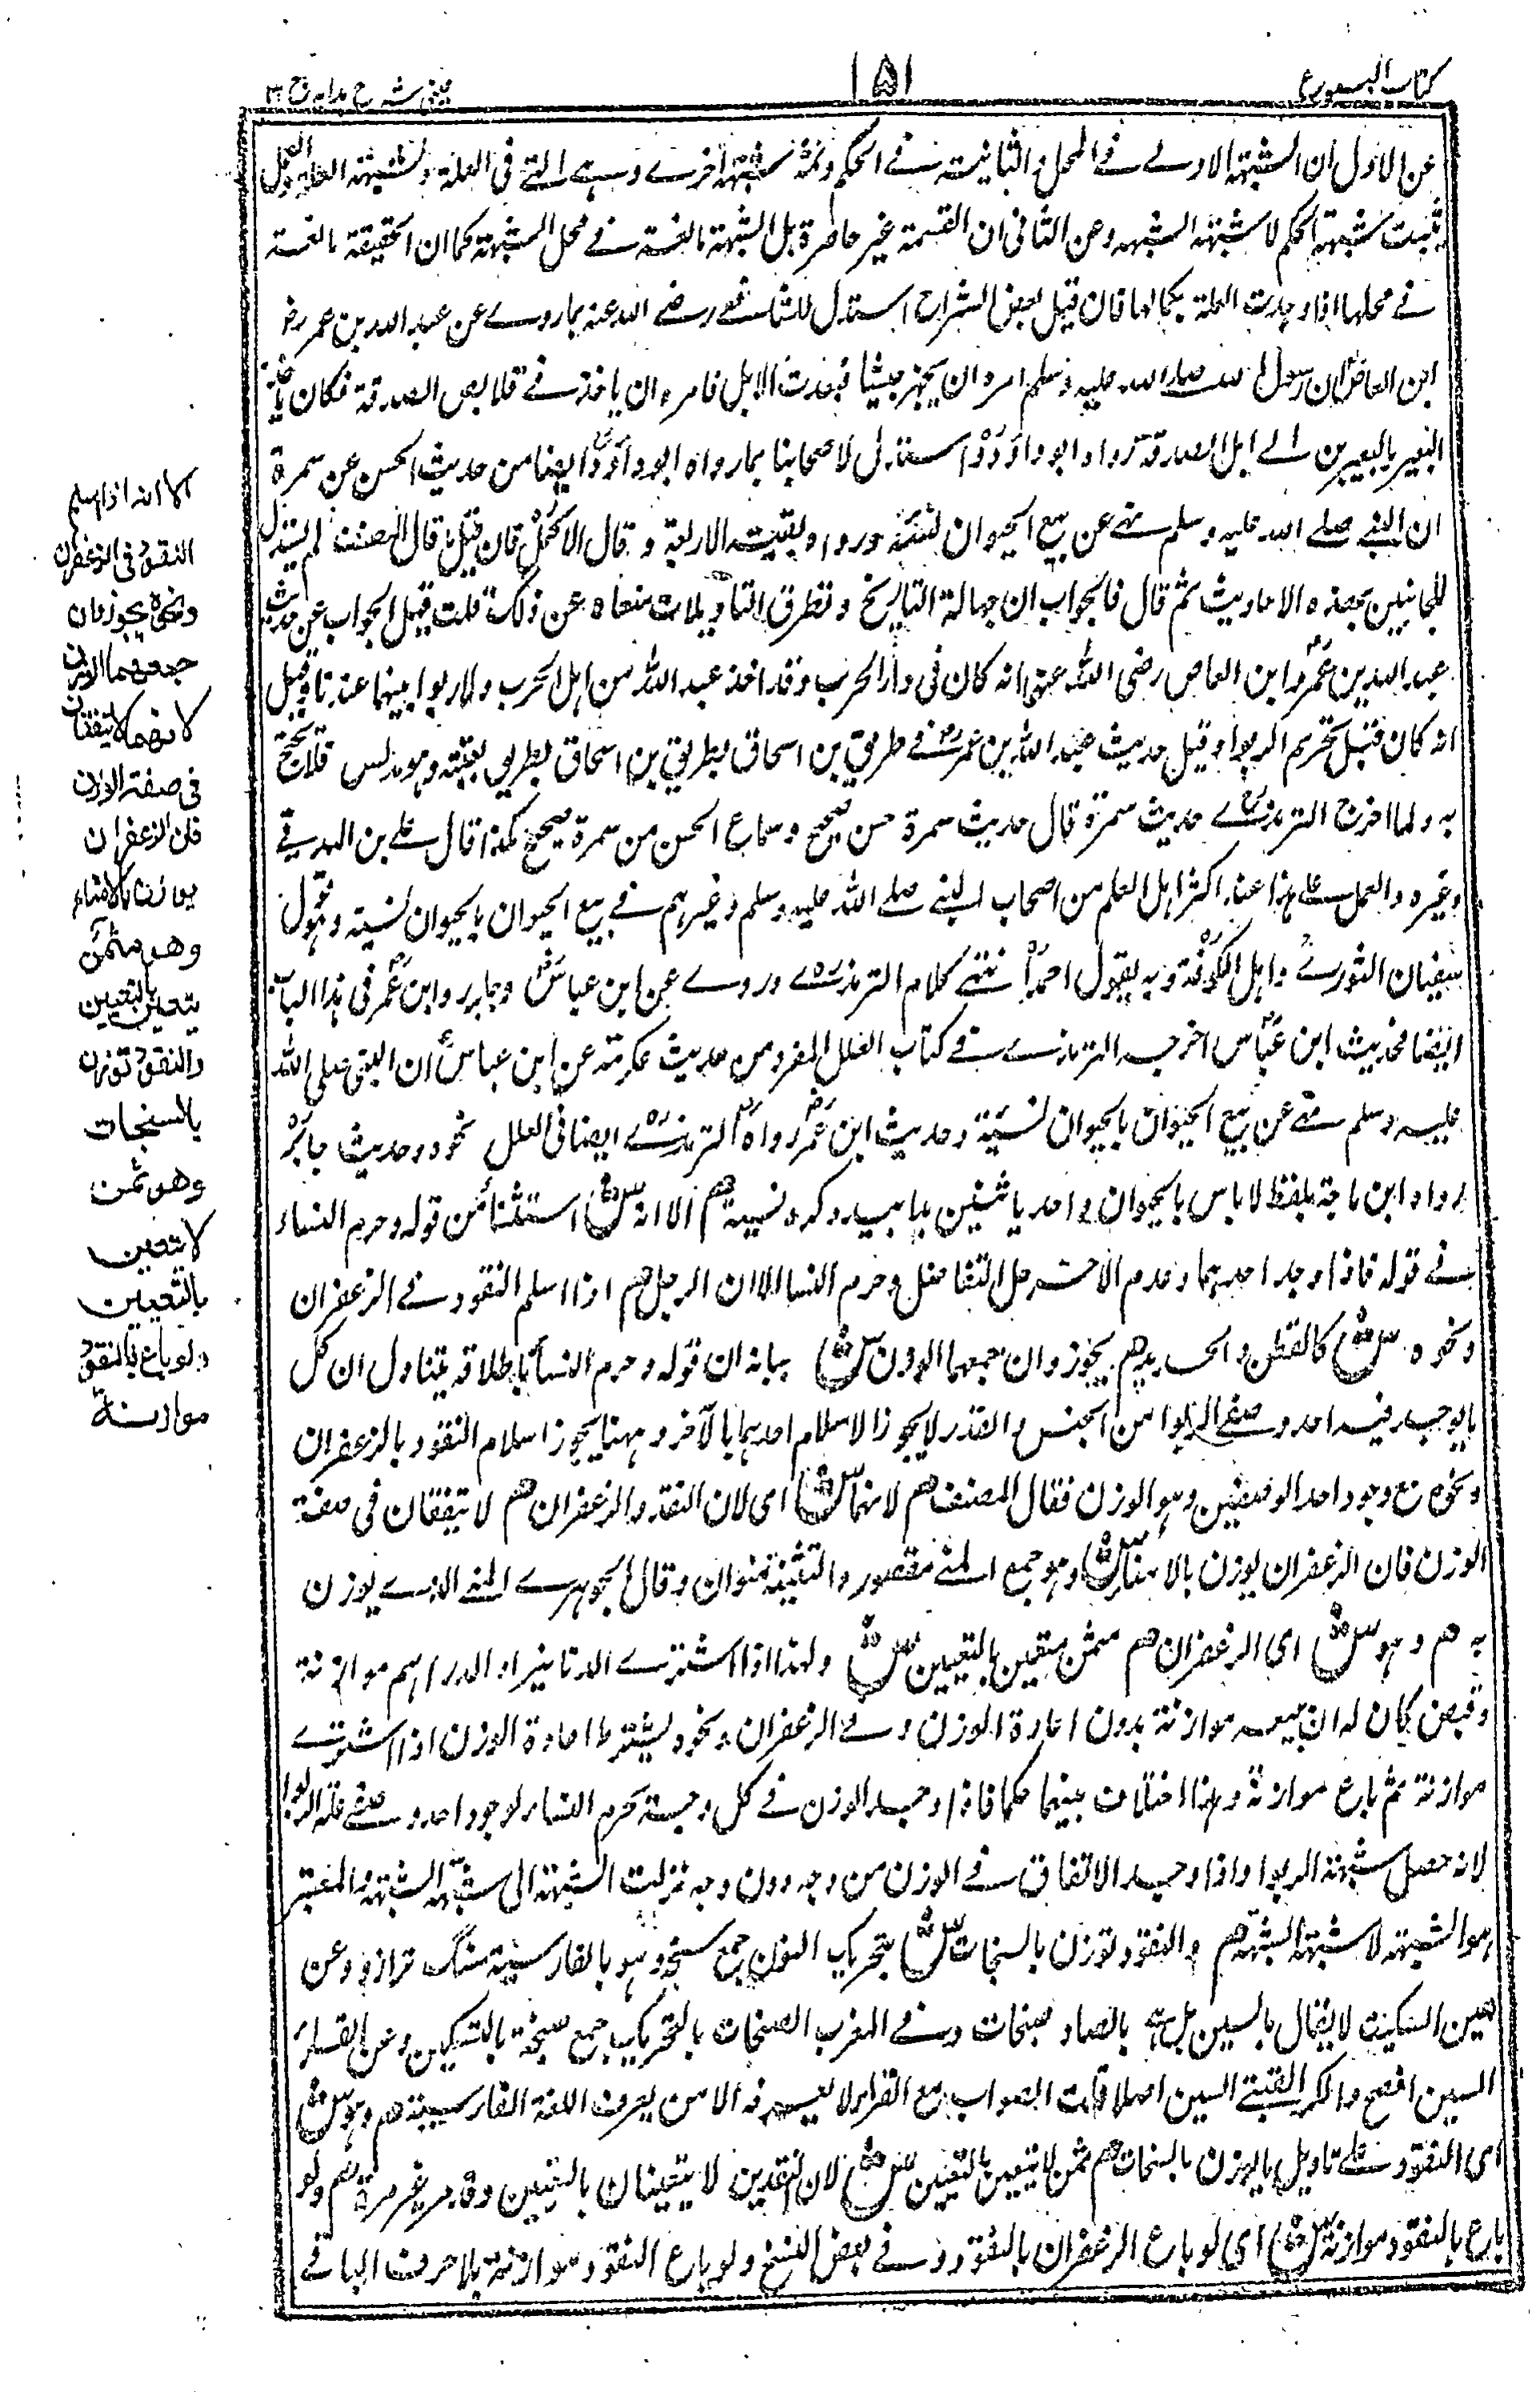 كتاب البيوع
١٥١
عينى شرح هدايه ج ٣
عن الاول ان الشبهة الاولے فے المحل والثانية فے الحكم وثمة شبهة اخرے وهے التے فى العلة وشبهة العلة
تثبت شبهة الحكم لا شبهة الشبهه وعن الثانى ان القسمة غير حاصرة بل الشبهة مانعة فے محل الشبهة كما ان الحقيقة مانعة
فے محلها اذا وجدت العلة بكمالها فان قيل بعض الشراح استدل للشافعے رضے الله عنه بما روے عن عبد الله بن عمرو
ابن العاص ان رسول الله صلے الله عليه وسلم امره ان يجهز جيشا فنفدت الابل فامره ان ياخذ فے قلايص الصدقة فكان ياخذ
البعير بالبعيرين الے ابل الصدقة رواه ابو داود واستدل لاصحابنا بما رواه ابو داود ايضا من حديث الحسن عن سمرة
ان النبے صلے الله عليه وسلم نهے عن بيع الحيوان نسئة ورواه بقيت الاربعة وقال الاكمل فان قيل قال المصنف لم يستدل
للجانبين بهذه الاحاديث ثم قال فالجواب ان جهالة التاريخ وتطرق التاويلات منعاه عن ذلك قلت قيل الجواب عن حديث
عبد الله بن عمرو ابن العاص رضى الله عنه انه كان فى دار الحرب وقد اخذ عبد الله من اهل الحرب ولا ربوا بينهما عندنا وقيل
انه كان قبل تحريم الربوا وقيل حديث عبد الله بن عمرو فے طريق بن اسحاق بطريق بن اسحاق بطريق بعنعنة وهو مدلس فلا يحتج
به ولما اخرج الترمذے حديث سمرة قال حديث سمرة حسن صحيح وسماع الحسن من سمرة صحيح كذا قال علے بن المدينے
وغيره والعمل علے هذا عند اكثر اهل العلم من اصحاب النبے صلے الله عليه وسلم وغيرهم فے بيع الحيوان بالحيوان نسيئة وهو قول
سفيان الثورے واهل الكوفة وبه يقول احمد انتهے كلام الترمذے وروے عن ابن عباس وجابر وابن عمر فى هذا الباب
ايضا فحديث ابن عباس اخرجه الترمذے فے كتاب العلل المفرد من حديث عكرمة عن ابن عباس ان النبى صلى الله
عليه وسلم نهے عن بيع الحيوان بالحيوان نسيئة وحديث ابن عمر رواه الترمذے ايضا فى العلل نحوه وحديث جابر
رواه ابن ماجة بلفظ لا باس بالحيوان واحد باثنين يدا بيد وكره نسيئة هم الا انه ش استثناء من قوله وحرم النساء
فے قوله فاذا وجد احدهما وعدم الاخر حل التفاضل وحرم النسا الا ان الرجل هم اذا اسلم النقود فے الزعفران
ونحوه ش كالقطن والحديد هم يجوز وان جمعهما الوزن ش بيانه ان قوله وحرم النساء باطلاقه يتناول ان كل
ما يوجد فيه احد وصفے الربوا من الجنس والقدر لا يجوز الاسلام احدهما بالآخر وههنا يجوز اسلام النقود بالزعفران
ونحوه مع وجود احد الوصفين وهو الوزن فقال المصنف هم لانهما ش اى لان النقد والزعفران هم لا يتفقان فى صفة
الوزن فان الزعفران يوزن بالامناء ش وهو جمع المنے مقصور والتثنية منوان وقال الجوهرے المنا الذے يوزن
به هم وهو ش اى الزعفران هم مثمن يتعين بالتعيين ش ولهذا اذا اشترے الدنانير او الدراهم موازنة
وقبض كان له ان يبيعه موازنة بدون اعادة الوزن وفے الزعفران ونحوه يشترط اعادة الوزن اذا اشترے
موازنة ثم باع موازنة وهذا اختلاف بينهما حكما فاذا وجد الوزن فے كل وجه حرم النساء لوجود احد وصفے علة الربوا
لانه حصل شبهة الربوا واذا وجد الاتفاق فے الوزن من وجه دون وجه نزلت الشبهة الى شبهة الشبهة والمعتبر
هو الشبهة لا شبهة الشبهة هم والنقود توزن بالسنجات ش بتحريك النون جمع سنجة وهو بالفارسية سنگ ترازو وعن
ابن السكيت لا يقال بالسين بل بالصاد صنجات وفے المغرب الصنجات بالتحريك جمع صنجة بالتسكين وعن الفراء
السين افصح وانكر القتبے السين اصلا قلت الصواب مع الفراء لا يعرفه الا من يعرف اللغة الفارسية هم وهو ش
اى النقود علے تاويل ما يوزن بالسنجات هم ثمن لا يتعين بالتعيين ش لان النقدين لا يتعينان بالتعيين وقد مر غير مرة هم ولو
باع بالنقود موازنة ش اى لو باع الزعفران بالنقود وفے بعض النسخ ولو باع النقود موازنة بلا حرف الباء فے
الا انه اذا اسلم
النقود فى الزعفران
ونحوه يجوز وان
جمعهما الوزن
لانهما لا يتفقان
فى صفة الوزن
فان الزعفران
يوزن بالامناء
وهو مثمن
يتعين بالتعيين
والنقود توزن
بالسنجات
وهو ثمن
لا يتعين
بالتعيين
ولو باع بالنقود
موازنة